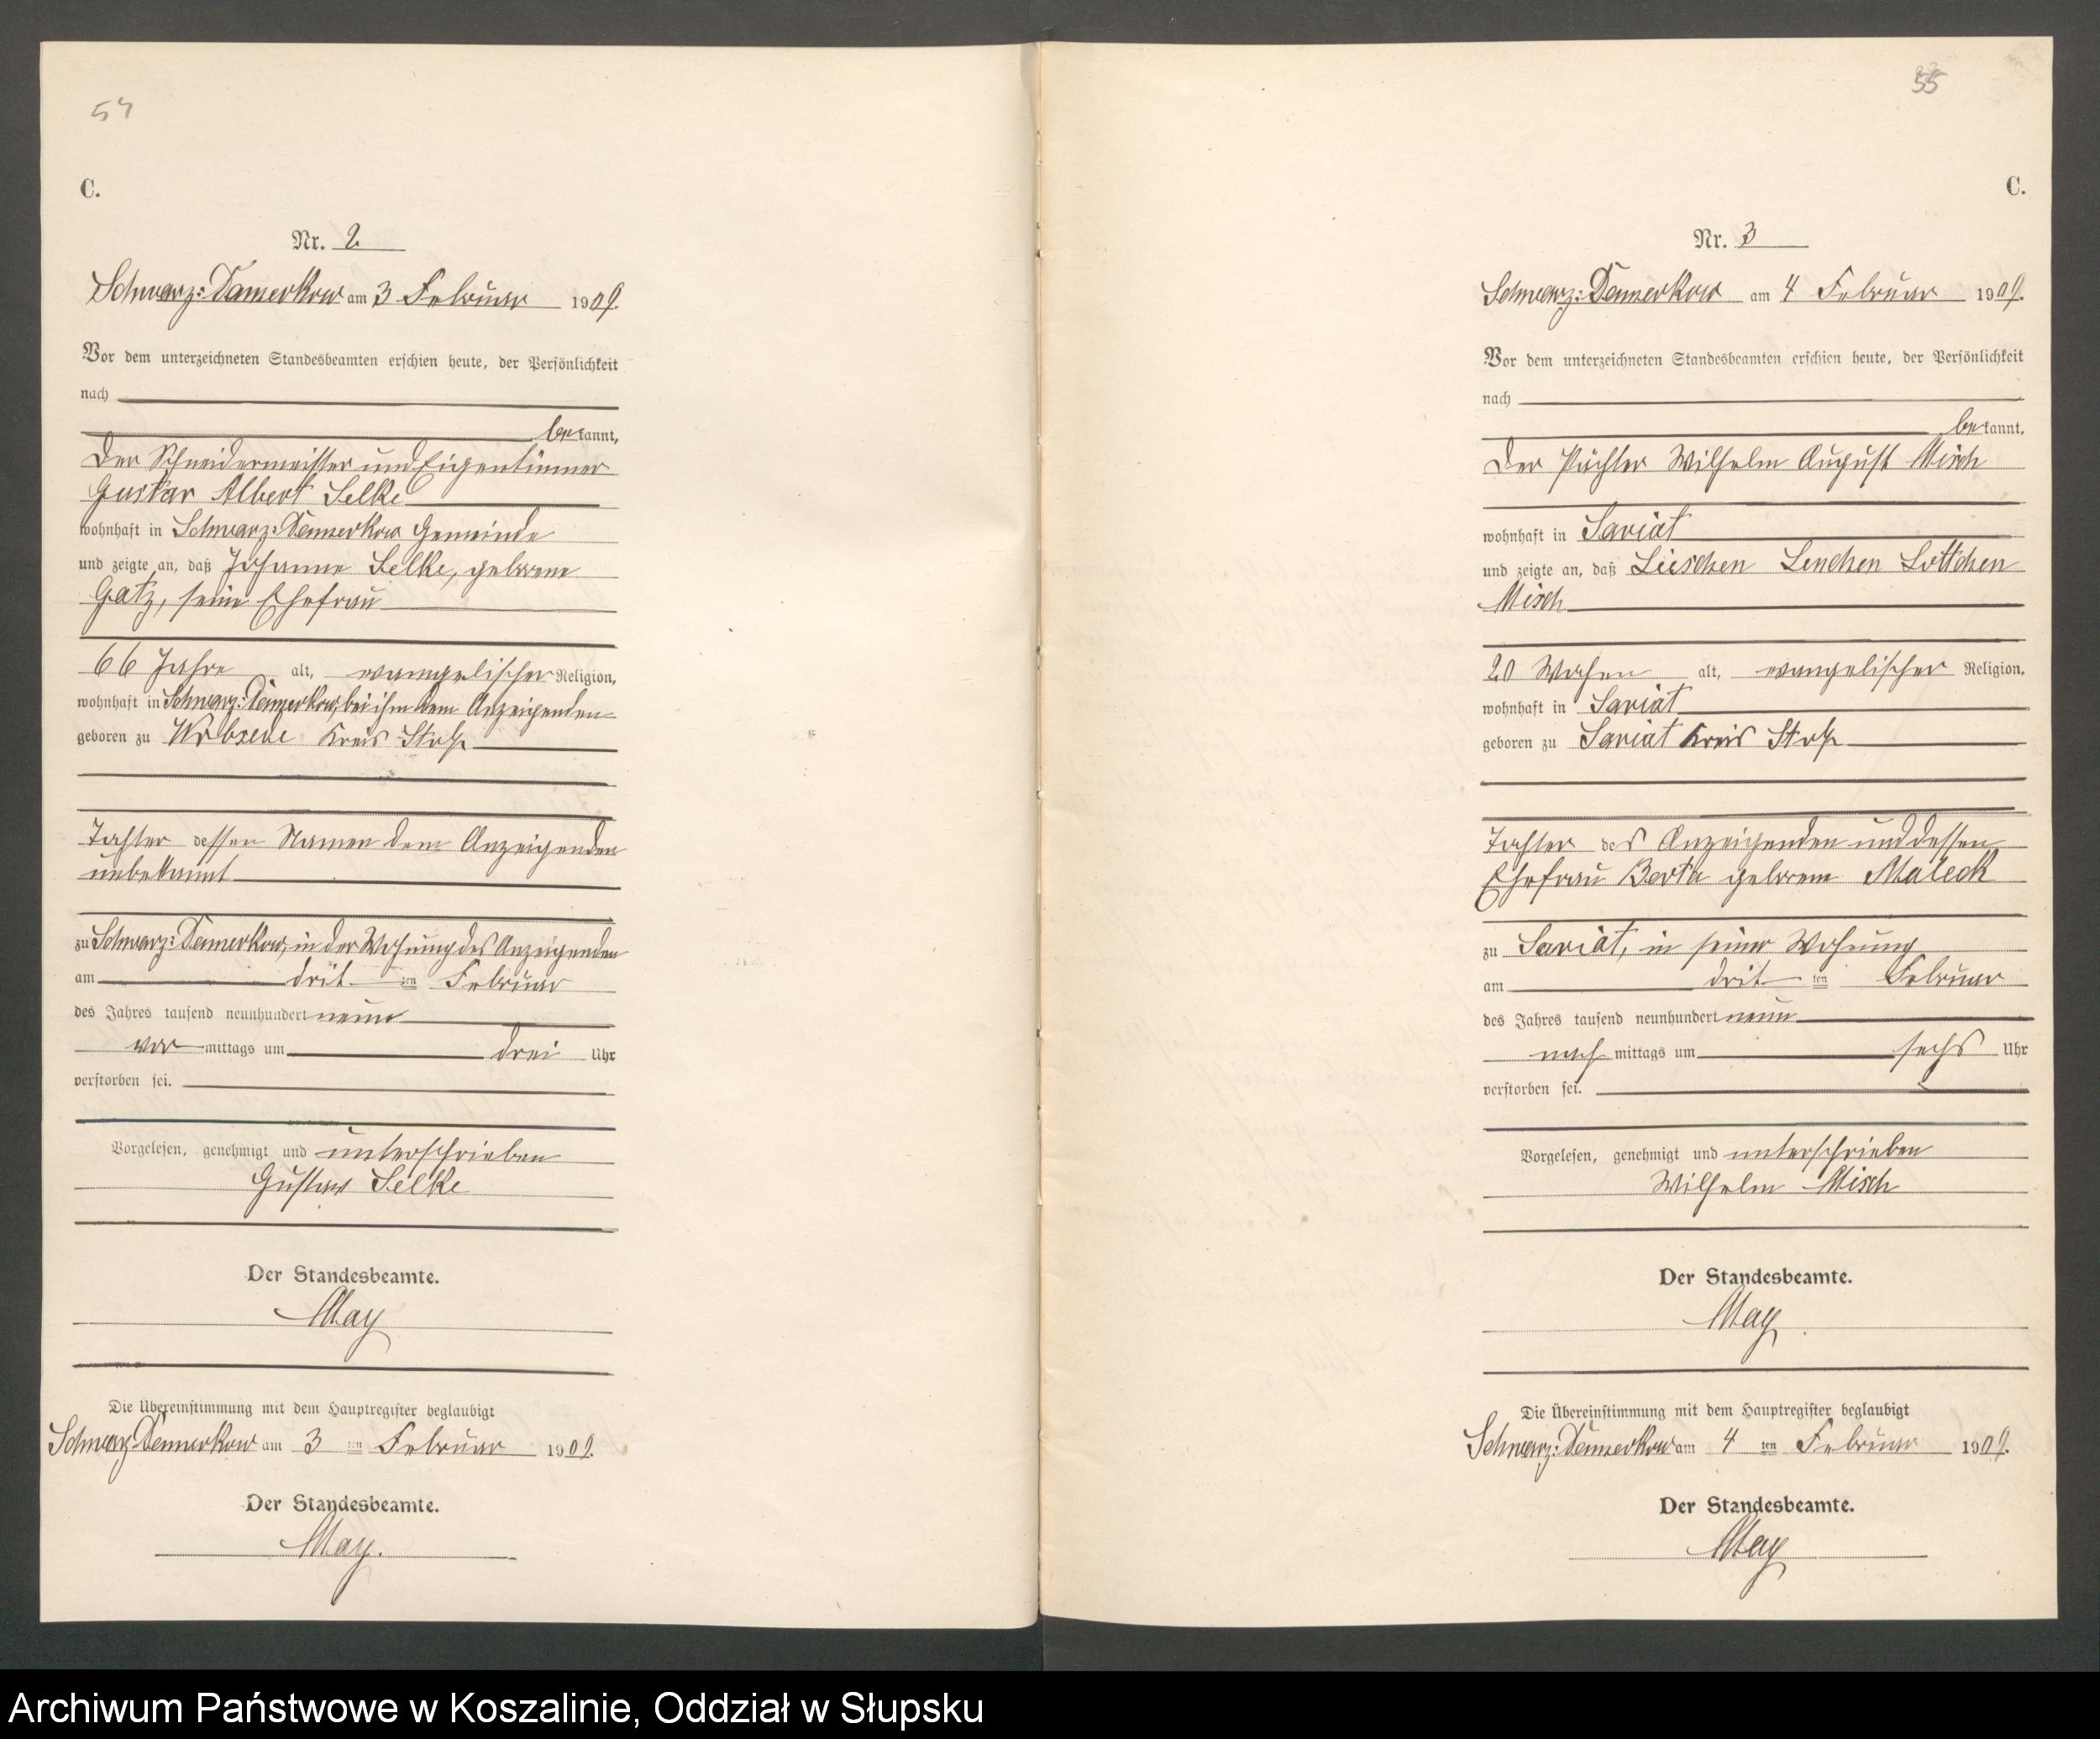 54
C.
Nr. 2
Schwarz-Damerkow am 3 Februar 1909.
Vor dem unterzeichneten Standesbeamten erschien heute, der Persönlichkeit
nach
bekannt,
der Schneidermeister und Eigentümer
Gustav Albert Selke
wohnhaft in Schwarz-Damerkow Gemeinde
und zeigte an, daß Johanne Selke, geborene
Gatz, seine Ehefrau
66 Jahre alt, evangelischer Religion,
wohnhaft in Schwarz-Damerkow, bei ihm dem Anzeigenden
geboren zu Wobsede Kreis Stolp
Tochter dessen Namen dem Anzeigenden
unbekannt
zu Schwarz-Damerkow, in der Wohnung des Anzeigenden
am dritten Februar
des Jahres tausend neunhundert neun
vormittags um drei Uhr
verstorben sei.
Vorgelesen, genehmigt und unterschrieben
Gustav Selke
Der Standesbeamte.
May
Die Übereinstimmung mit dem Hauptregister beglaubigt
Schwarz Damerkow am 3 ten Februar 1909.
Der Standesbeamte.
May.
55
C.
Nr. 3
Schwarz-Damerkow am 4 Februar 1909.
Vor dem unterzeichneten Standesbeamten erschien heute, der Persönlichkeit
nach
bekannt,
der Pächter Wilhelm August Misch
wohnhaft in Saviat
und zeigte an, daß Lieschen Lenchen Lottchen
Misch
20 Wochen alt, evangelischer Religion,
wohnhaft in Saviat
geboren zu Saviat Kreis Stolp
Tochter des Anzeigenden und dessen
Ehefrau Berta geborene Maleck
zu Saviat, in seiner Wohnung
am dritten Februar
des Jahres tausend neunhundert neun
nachmittags um sechs Uhr
verstorben sei.
Vorgelesen, genehmigt und unterschrieben
Wilhelm Misch
Der Standesbeamte.
May
Die Übereinstimmung mit dem Hauptregister beglaubigt
Schwarz-Damerkow am 4 ten Februar 1909.
Der Standesbeamte.
May
Archiwum Państwowe w Koszalinie, Oddział w Słupsku